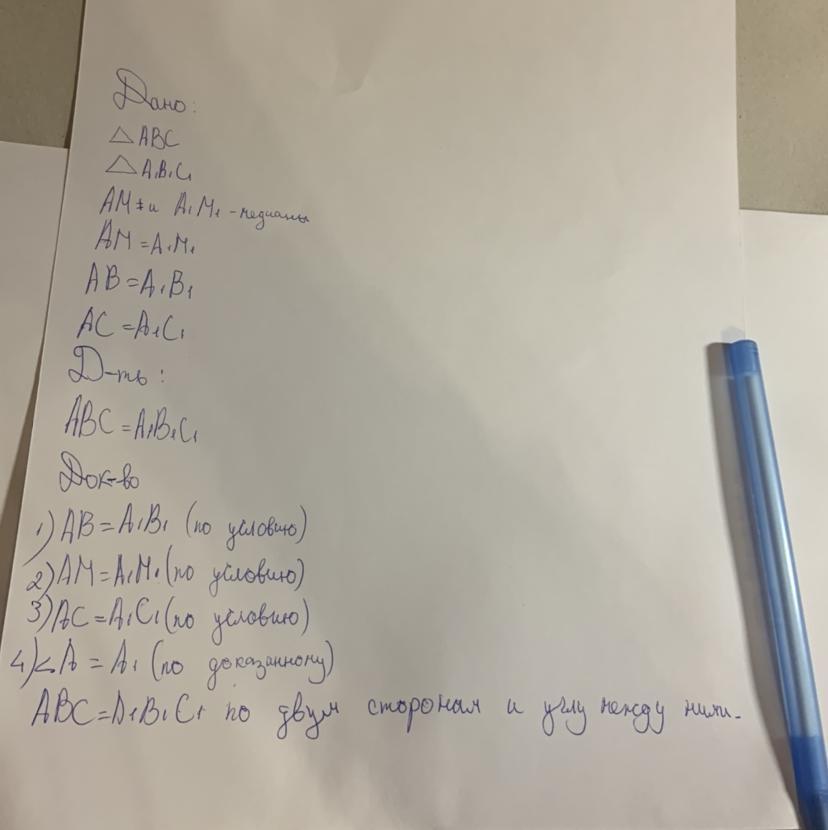 Дано:
△ABC
△A₁B₁C₁
AM и A₁M₁ - медианы
AM = A₁M₁
AB = A₁B₁
AC = A₁C₁
Д-ть:
ABC = A₁B₁C₁
Док-во
1) AB = A₁B₁ (по условию)
2) AM = A₁M₁ (по условию)
3) AC = A₁C₁ (по условию)
4) ∠A = A₁ (по доказанному)
ABC = A₁B₁C₁ по двум сторонам и углу между ними.